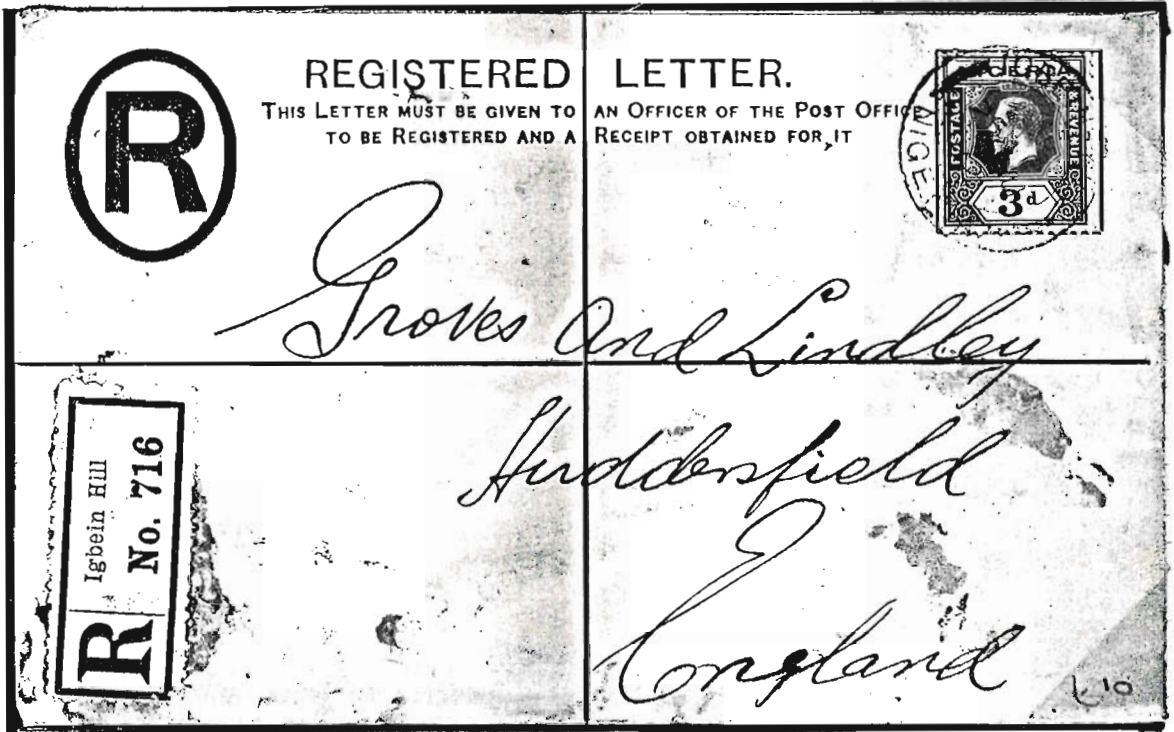 REGISTERED LETTER.
THIS LETTER MUST BE GIVEN TO AN OFFICER OF THE POST OFFICE
TO BE REGISTERED AND A RECEIPT OBTAINED FOR IT
R
NIGERIA
POSTAGE & REVENUE
3d
NIGE
Groves And Lindley
Huddersfield
England
R
Igbein Hill
No. 716
10